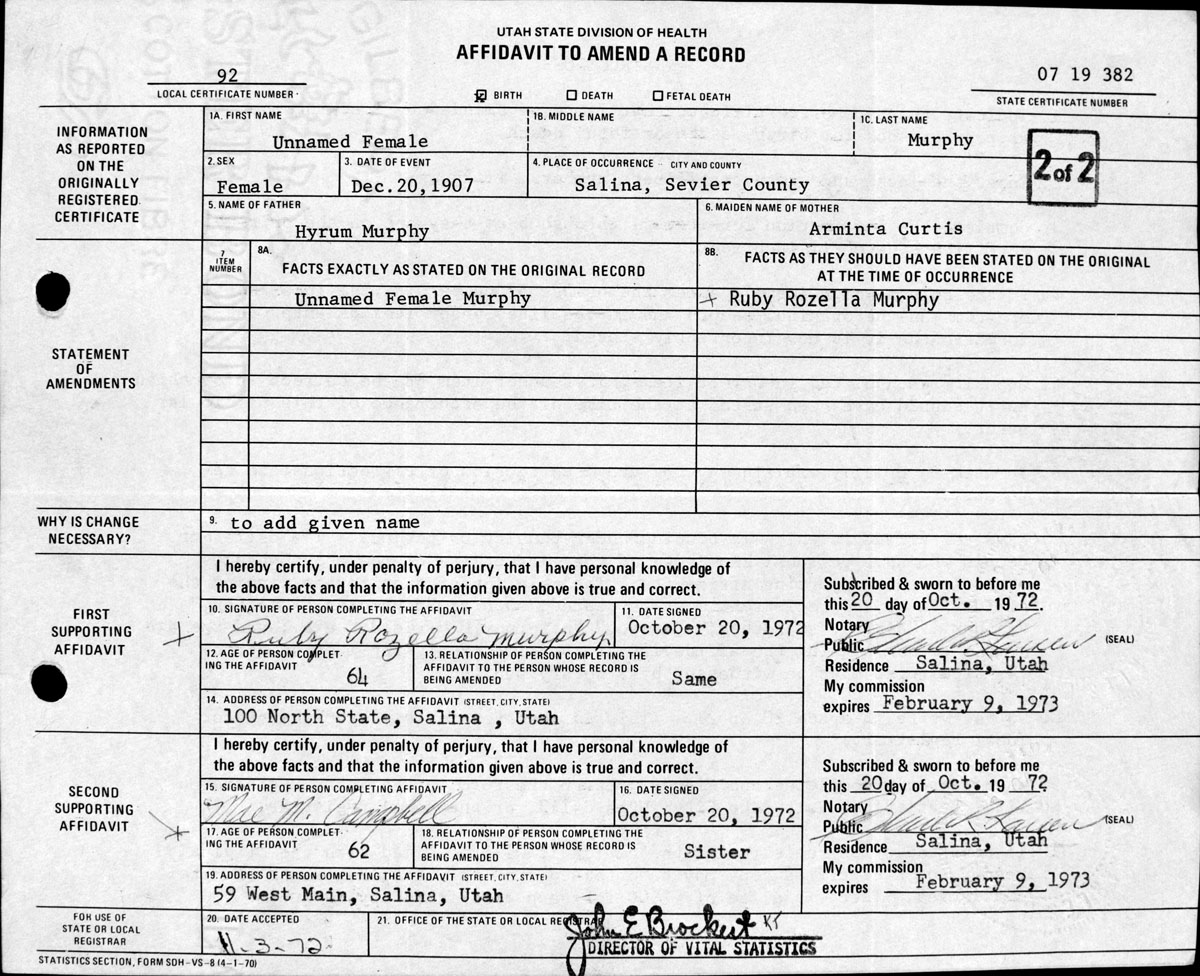 UTAH STATE DIVISION OF HEALTH
AFFIDAVIT TO AMEND A RECORD
92
LOCAL CERTIFICATE NUMBER
BIRTH DEATH FETAL DEATH
07 19 382
STATE CERTIFICATE NUMBER
INFORMATION
AS REPORTED
ON THE
ORIGINALLY
REGISTERED
CERTIFICATE
1A. FIRST NAME
Unnamed Female
1B. MIDDLE NAME
1C. LAST NAME
Murphy
2 of 2
2. SEX
Female
3. DATE OF EVENT
Dec.20,1907
4. PLACE OF OCCURRENCE - CITY AND COUNTY
Salina, Sevier County
5. NAME OF FATHER
Hyrum Murphy
6. MAIDEN NAME OF MOTHER
Arminta Curtis
STATEMENT
OF
AMENDMENTS
7
ITEM
NUMBER
8A.
FACTS EXACTLY AS STATED ON THE ORIGINAL RECORD
8B.
FACTS AS THEY SHOULD HAVE BEEN STATED ON THE ORIGINAL
AT THE TIME OF OCCURRENCE
Unnamed Female Murphy
+ Ruby Rozella Murphy
WHY IS CHANGE
NECESSARY?
9. to add given name
FIRST
SUPPORTING
AFFIDAVIT
I hereby certify, under penalty of perjury, that I have personal knowledge of
the above facts and that the information given above is true and correct.
10. SIGNATURE OF PERSON COMPLETING THE AFFIDAVIT
Ruby Rozella Murphy
11. DATE SIGNED
October 20, 1972
12. AGE OF PERSON COMPLET-
ING THE AFFIDAVIT
64
13. RELATIONSHIP OF PERSON COMPLETING THE
AFFIDAVIT TO THE PERSON WHOSE RECORD IS
BEING AMENDED
Same
14. ADDRESS OF PERSON COMPLETING THE AFFIDAVIT (STREET, CITY, STATE)
100 North State, Salina , Utah
Subscribed & sworn to before me
this 20 day of Oct. 19 72.
Notary
Public
(SEAL)
Residence Salina, Utah
My commission
expires February 9, 1973
SECOND
SUPPORTING
AFFIDAVIT
I hereby certify, under penalty of perjury, that I have personal knowledge of
the above facts and that the information given above is true and correct.
15. SIGNATURE OF PERSON COMPLETING AFFIDAVIT
Mae M. Campbell
16. DATE SIGNED
October 20, 1972
17. AGE OF PERSON COMPLET-
ING THE AFFIDAVIT
62
18. RELATIONSHIP OF PERSON COMPLETING THE
AFFIDAVIT TO THE PERSON WHOSE RECORD IS
BEING AMENDED
Sister
19. ADDRESS OF PERSON COMPLETING THE AFFIDAVIT (STREET, CITY, STATE)
59 West Main, Salina, Utah
Subscribed & sworn to before me
this 20 day of Oct. 19 72
Notary
Public
(SEAL)
Residence Salina, Utah
My commission
expires February 9, 1973
FOR USE OF
STATE OR LOCAL
REGISTRAR
20. DATE ACCEPTED
11-3-72
21. OFFICE OF THE STATE OR LOCAL REGISTRAR
John E Brockert KT
DIRECTOR OF VITAL STATISTICS
STATISTICS SECTION, FORM SDH-VS-8 (4-1-70)